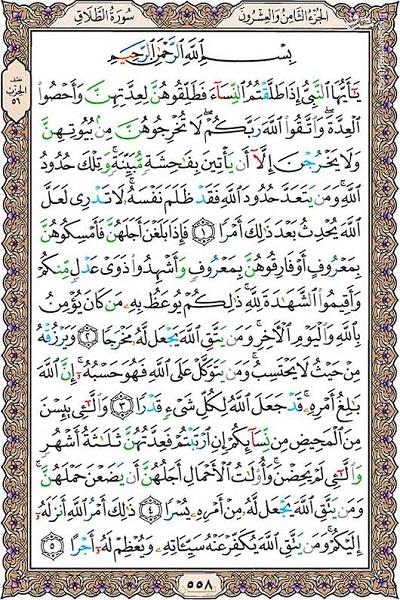 الجزء الثامن و العشرون
سورة الطلاق
بِسْمِ اللَّهِ الرَّحْمَٰنِ الرَّحِيمِ
يَا أَيُّهَا النَّبِيُّ إِذَا طَلَّقْتُمُ النِّسَاءَ فَطَلِّقُوهُنَّ لِعِدَّتِهِنَّ وَأَحْصُوا
الْعِدَّةَ وَاتَّقُوا اللَّهَ رَبَّكُمْ لَا تُخْرِجُوهُنَّ مِنْ بُيُوتِهِنَّ
وَلَا يَخْرُجْنَ إِلَّا أَنْ يَأْتِينَ بِفَاحِشَةٍ مُبَيِّنَةٍ وَتِلْكَ حُدُودُ
اللَّهِ وَمَنْ يَتَعَدَّ حُدُودَ اللَّهِ فَقَدْ ظَلَمَ نَفْسَهُ لَا تَدْرِي لَعَلَّ
اللَّهَ يُحْدِثُ بَعْدَ ذَٰلِكَ أَمْرًا ﴿١﴾ فَإِذَا بَلَغْنَ أَجَلَهُنَّ فَأَمْسِكُوهُنَّ
بِمَعْرُوفٍ أَوْ فَارِقُوهُنَّ بِمَعْرُوفٍ وَأَشْهِدُوا ذَوَىْ عَدْلٍ مِنْكُمْ
وَأَقِيمُوا الشَّهَادَةَ لِلَّهِ ذَٰلِكُمْ يُوعَظُ بِهِ مَنْ كَانَ يُؤْمِنُ
بِاللَّهِ وَالْيَوْمِ الْآخِرِ وَمَنْ يَتَّقِ اللَّهَ يَجْعَلْ لَهُ مَخْرَجًا ﴿٢﴾ وَيَرْزُقْهُ
مِنْ حَيْثُ لَا يَحْتَسِبُ وَمَنْ يَتَوَكَّلْ عَلَى اللَّهِ فَهُوَ حَسْبُهُ إِنَّ اللَّهَ
بَالِغُ أَمْرِهِ قَدْ جَعَلَ اللَّهُ لِكُلِّ شَيْءٍ قَدْرًا ﴿٣﴾ وَاللَّائِي يَئِسْنَ
مِنَ الْمَحِيضِ مِنْ نِسَائِكُمْ إِنِ ارْتَبْتُمْ فَعِدَّتُهُنَّ ثَلَاثَةُ أَشْهُرٍ
وَاللَّائِي لَمْ يَحِضْنَ وَأُولَاتُ الْأَحْمَالِ أَجَلُهُنَّ أَنْ يَضَعْنَ حَمْلَهُنَّ
وَمَنْ يَتَّقِ اللَّهَ يَجْعَلْ لَهُ مِنْ أَمْرِهِ يُسْرًا ﴿٤﴾ ذَٰلِكَ أَمْرُ اللَّهِ أَنْزَلَهُ
إِلَيْكُمْ وَمَنْ يَتَّقِ اللَّهَ يُكَفِّرْ عَنْهُ سَيِّئَاتِهِ وَيُعْظِمْ لَهُ أَجْرًا ﴿٥﴾
٥٥٨